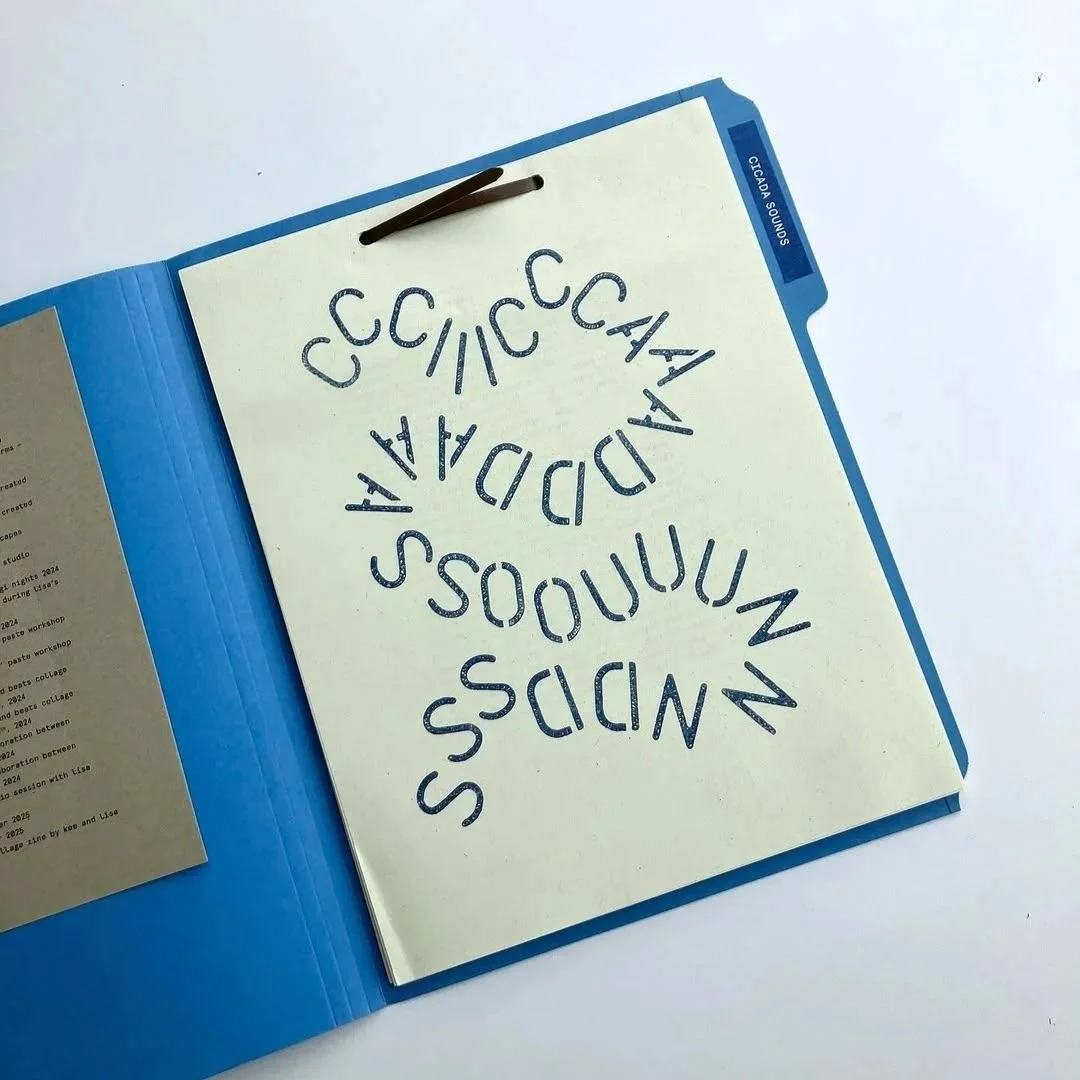 CICADA SOUNDS
CCCIIICCCAAADDDAAA
SSOOUUUNNNDDSSS
created
created
studio
nights 2024
during Lisa's
2024
paste workshop
paste workshop
beats collage
2024
beats collage
2024
between
2024
between
2024
session with Lisa
2025
2025
zine by kee and Lisa